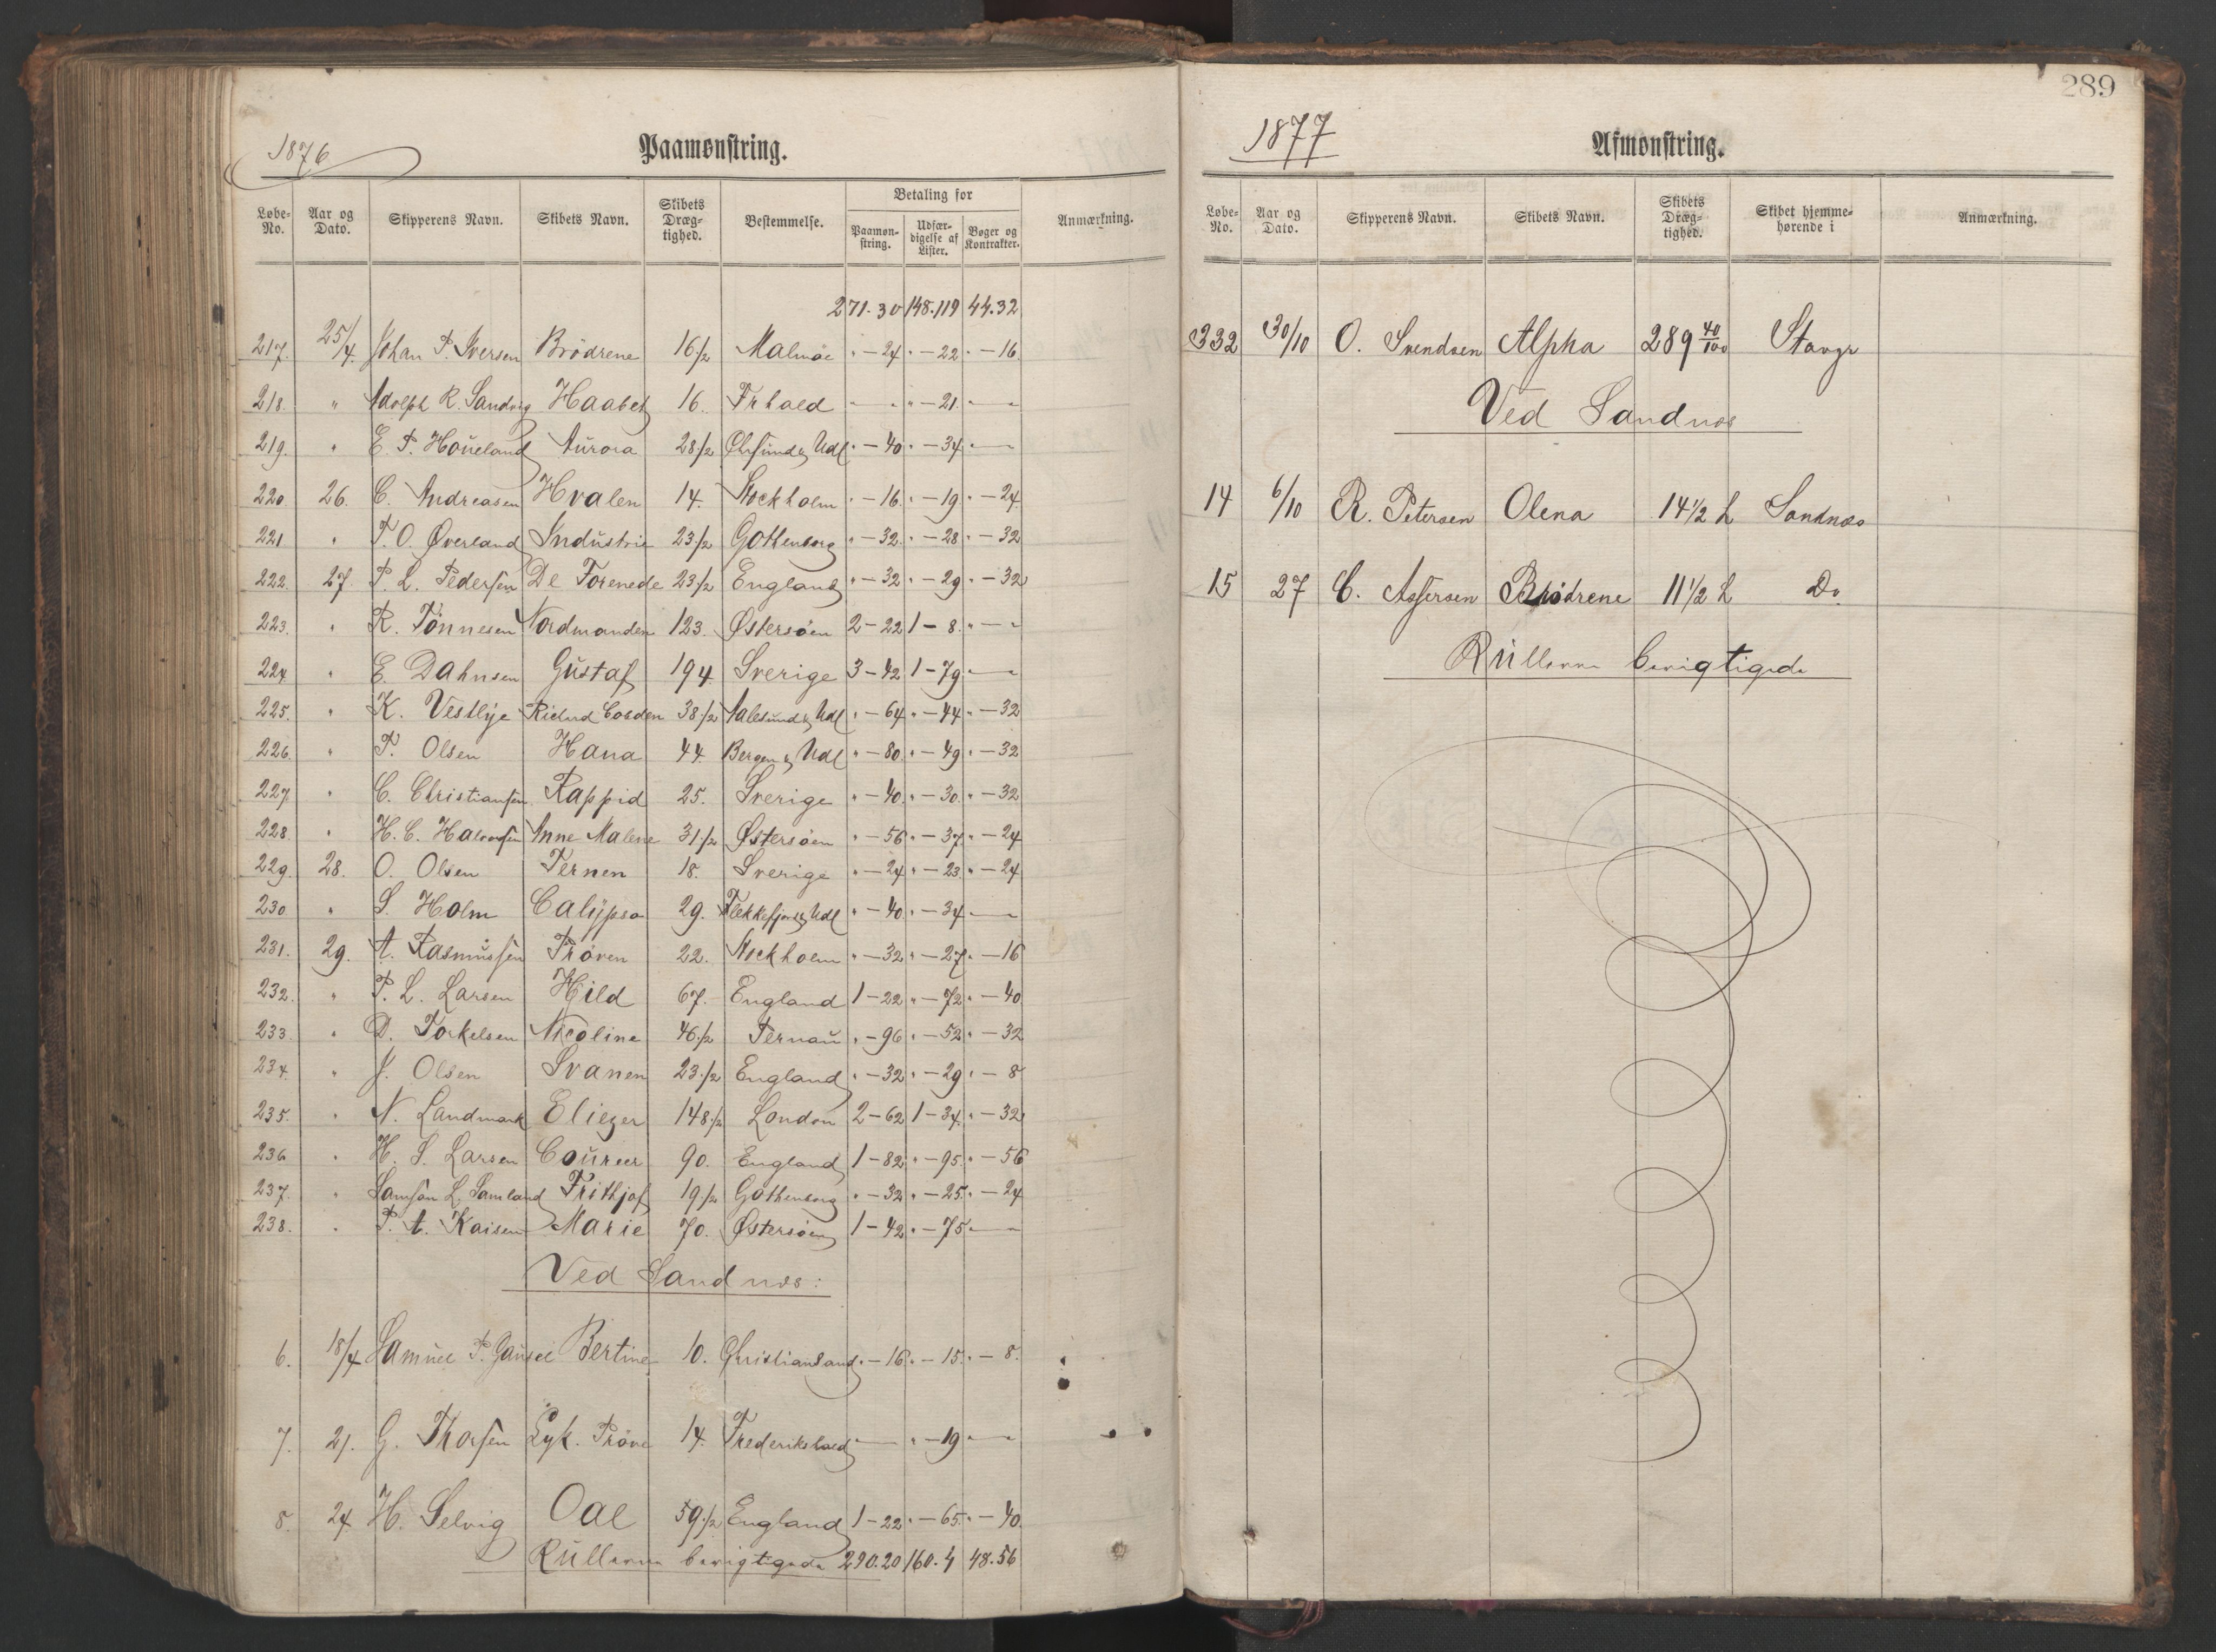 1876
Paamønstring.
Løbe-No. Aar og Dato. Skipperens Navn. Skibets Navn. Skibets Dræg-tighed. Bestemmelse. Betaling for Paamøn-string. Udfær-digelse af Lister. Bøger og Kontrakter. Anmærkning.
271.30 148.119 44.32
217. 25/4. Johan P. Iversen Brödrene 16 1/2 Malmöe " - 24 " - 22 " - 16
218. " Adolph R. Sandvig Haabet 16. Frhald - - " - 21. " -
219. " E. P. Houeland Aurora 28 1/2 Chrsund & Udl " - 40 " - 34 " -
220 26. C. Andreasen Hvalen 14. Stockholm " - 16. " - 19 " - 24
221 " T. O. Øverland Industrie 23 1/2 Gothenborg " - 32. " - 28 " - 32
222. 27. P. L. Pedersen De Forenede 23 1/2 England " - 32 " - 29 " - 32
223. " R. Tönnesen Nordmanden 123. Østersöen 2 - 22 1 - 8. " - "
224 " E. Dahnsen Gustaf 194. Sverige 3 - 42 1 - 79 " -
225. " K. Vestbye Richard Cobden 38 1/2 Aalesund & Udl " - 64 " - 44 " - 32
226. " T. Olsen Hana 44. Bergen & Udl " - 80 " - 49 " - 32
227. " C. Christiansen Rappid 25. Sverige " - 40 " - 30 " - 32
228. " H. C. Halvorsen Anne Malene 31 1/2 Østersöen " - 56 " - 37 " - 24
229. 28. O. Olsen Ternen 18. Sverige " - 24 " - 23 " - 24
230 " S. Holm Calypso 29. Flekkefjord & Udl " - 40 " - 34 " -
231. 29. A. Rasmussen Pröven 22. Stockholm " - 32 " - 27 " - 16
232. " P. L. Larsen Hild 67. England 1 - 22 " - 72 " - 40
233. " D. Torkelsen Nicoline 46 1/2 Pernau " - 96 " - 52 " - 32
234. " J. Olsen Svanen 23 1/2 England " - 32 " - 29 " - 8
235. " N. Landmark Eliezer 148 1/2 London 2 - 62 1 - 34 " - 32
236 " H. S. Larsen Coureer 90. England 1 - 82 " - 95 " - 56
237. " Samson L. Samland Frithjof 19 1/2 Gothenborg " - 32 " - 25 " - 24
238. " P. A. Kaisen Marie 70. Østersöen 1 - 42 " - 75 " -
Ved Sandnæs:
6. 18/4 Samuel P. Gausel Bertine 10. Christiansand " - 16 " - 15 " - 8.
7. 21. G. Thorsen Lyk. Pröve 14. Frederikshald " - " - 19 " -
8. 24 H. Selvig Oal 59 1/2 England 1 - 22 " - 65 " - 40
Rullerne berigtigede 290.20 160.4 48.56
289
1877
Afmønstring.
Løbe-No. Aar og Dato. Skipperens Navn. Skibets Navn. Skibets Dræg-tighed. Skibet hjemme-hørende i Anmærkning.
332 30/10 O. Svendsen Alpha 289 40/100 Stavgr
Ved Sandnæs
14 6/10 R. Petersen Olena 14 1/2 L Sandnæs
15 27 C. Assersen Brödrene 11 1/2 L Do
Rullerne berigtigede